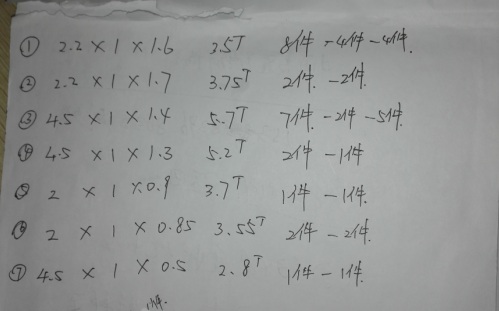 ① 2.2 × 1 × 1.6 3.5T 8件 - 4件 - 4件.
② 2.2 × 1 × 1.7 3.75T 2件 - 2件.
③ 4.5 × 1 × 1.4 5.7T 7件 - 2件 - 5件.
④ 4.5 × 1 × 1.3 5.2T 2件 - 1件
⑤ 2 × 1 × 0.9 3.7T 1件 - 1件.
⑥ 2 × 1 × 0.85 3.55T 2件 - 2件.
⑦ 4.5 × 1 × 0.5 2.8T 1件 - 1件.